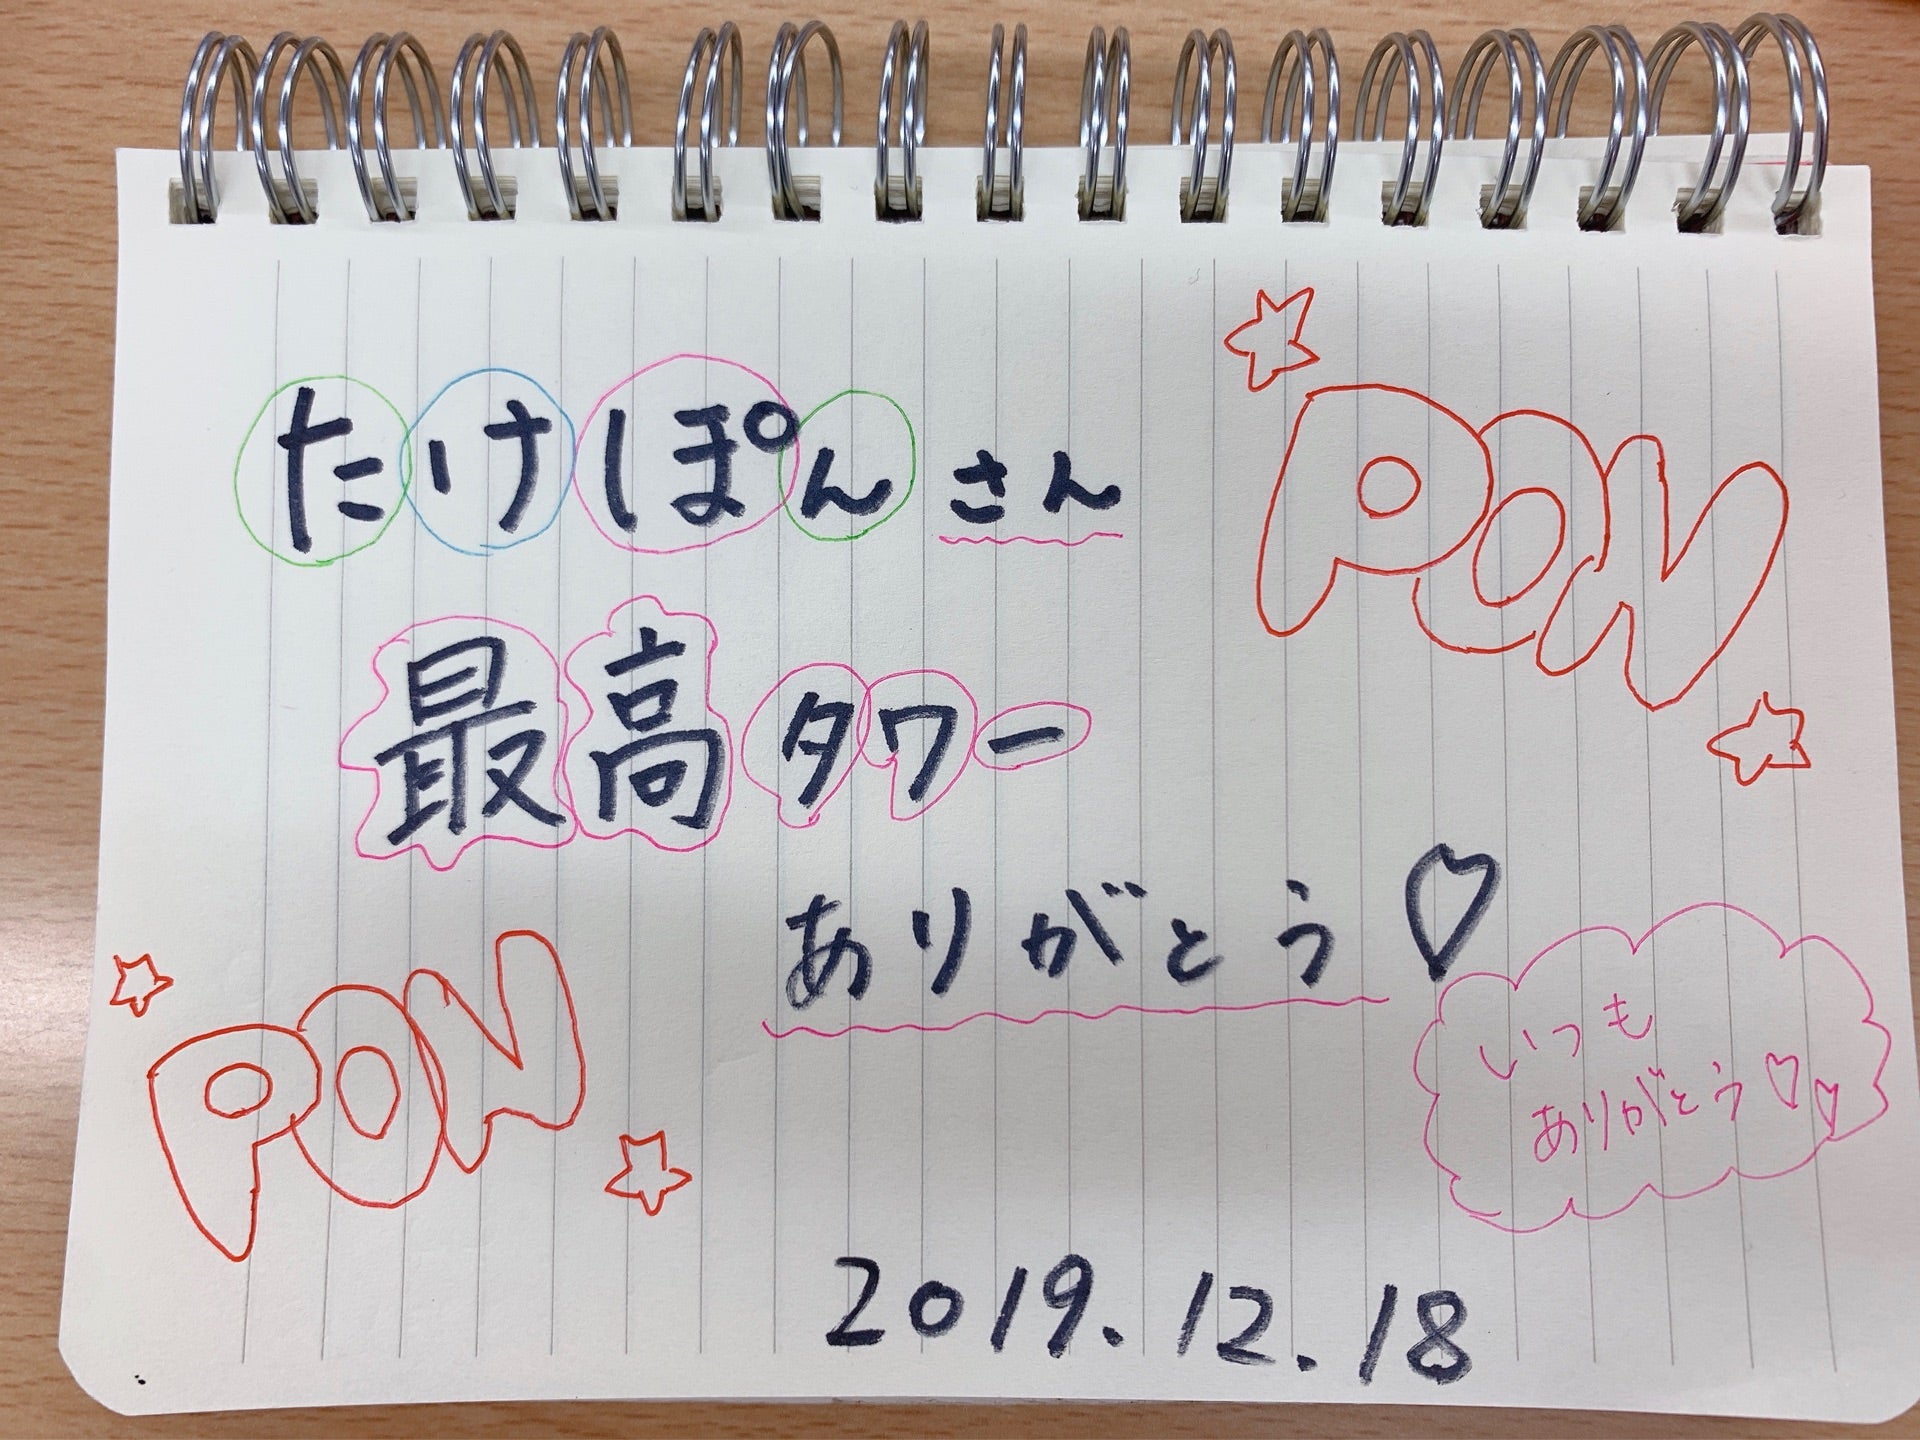 たけぽんさん
PON
最高タワー
ありがとう♡
いつも
ありがとう♡♡
PON
2019.12.18